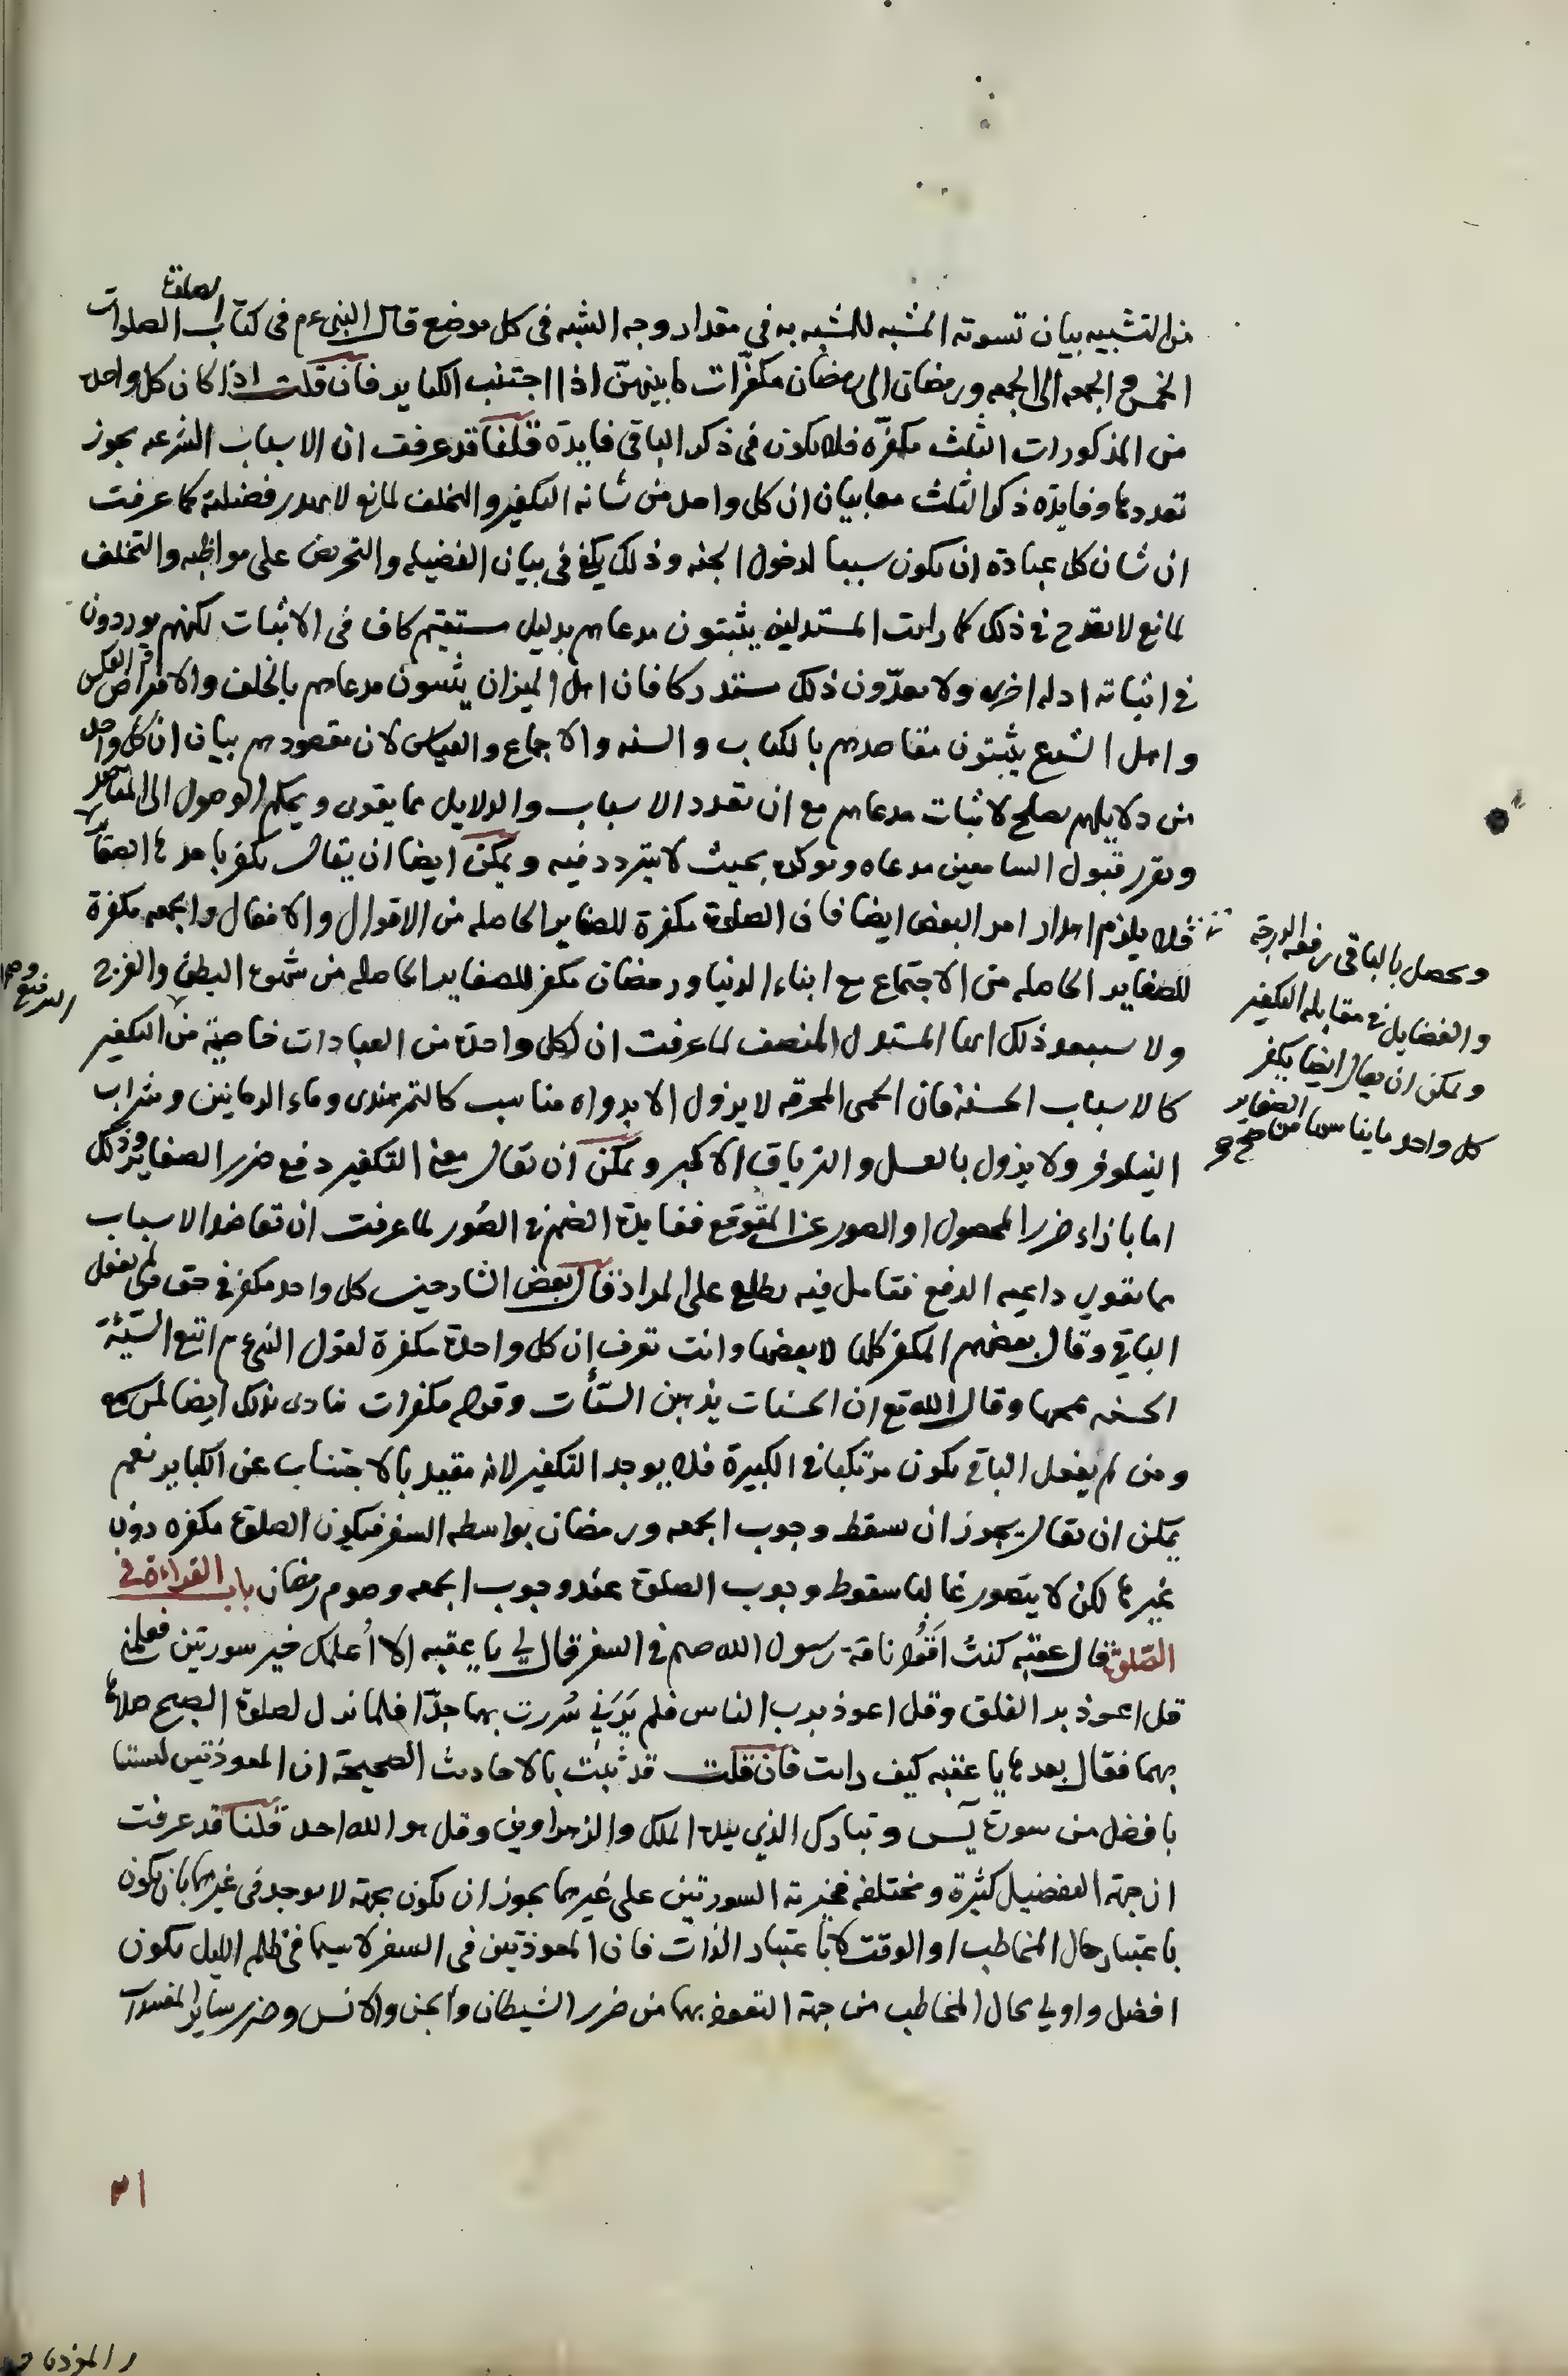 الصلوة
من التشبيه بيان تسوية المشبه للمشبه به في مقدار وجه الشبه في كل موضع قال النبي عم في كتاب الصلوات
الخمس و الجمعه الى الجمعه ورمضان الى رمضان مكفّرات لما بينهنّ اذا اجتنب الكباير فان قلت اذا كان كل واحد
من المذكورات الثلث مكفّره فلا يكون فى ذكر الباقى فايدة قلنا قد عرفت ان الاسباب الشرعيه يجوز
تعددها وفايدة ذكر الثلث معا بيان ان كل واحد من شانه التكفير والتخلف لمانع لا يهدر فضيلته كما عرفت
ان شان كل عبادة ان يكون سببا لدخول الجنه وذلك يكفي في بيان الفضيله والتحريض على مواظبه والتخلف
لمانع لا يقدح في ذلك كما رايت المستدلين يثبتون مدعاهم بدليل مستقيم كاف فى الاثبات لكنهم يوردون
في اثباته ادله اخرى ولا يعدّون ذلك مستدركا فان اهل الميزان يثبتون مدعاهم بالخلف والافتراض والعكس
واهل الشرع يثبتون مقاصدهم بالكتاب والسنه والاجماع والقياس لان مقصودهم بيان ان كل واحد
من دلايلهم يصلح لاثبات مدعاهم مع ان تعدد الاسباب والدلايل مما يقوى ويمكن الوصول الى المقاصد
ويقرر قبول السامعين مدعاه ويوكده بحيث لا يتردد فيه ويمكن ايضا ان يقال يكفر باحدها الصغاير
فلا يلزم اهدار امر البعض ايضا فان الصلوة مكفرة للصغاير الحاصله من الاقوال والافعال والجمعه مكفرة
للصغاير الحاصله من الاجتماع مع ابناء الدنيا ورمضان مكفر للصغاير الحاصله من شهوة البطن والفرج
ولا يستبعد ذلك ايها المستدل المنصف لما عرفت ان لكل واحدة من العبادات خاصية من التكفير
كالاسباب الحسنة فان الحمى المحرقه لا يزول الا بدواء مناسب كالتمر هندى وماء الرمانين وشراب
النيلوفر ولا يزول بالعسل والترياق الاكبر ويمكن ان يقال معنى التكفير دفع ضرر الصغاير وذلك
اما بازاء ضرر المحصول او الصور عن المتوقع ففايدة الضم في الصُور لما عرفت ان تعاضد الاسباب
مما يقوى داعيه الدفع فتامل فيه يطلع على المراد قال بعض الشارحين كل واحد مكفر في حق من لم يفعل
الباقي وقال بعضهم المكفر كلها لا بعضها وانت تعرف ان كل واحدة مكفرة لقول النبي عم اتبع السيّئة
الحسنه تمحها وقال الله تع ان الحسنات يذهبن السيّأت وقوله مكفرات ينادى بذلك ايضا لمن يسمع
ومن لم يفعل الباقي يكون مرتكبا في الكبيرة فلا يوجد التكفير لانه مقيد بالاجتناب عن الكباير نعم
يمكن ان يقال يجوز ان يسقط وجوب الجمعه ورمضان بواسطه السفر فيكون الصلوة مكفره دون
غيرها لكن لا يتصور غالبا سقوط وجوب الصلوة عند وجوب الجمعه وصوم رمضان باب القراءة في
الصّلوة قال عقبة كنتُ اَقُودُ ناقة رسول الله صلم في السفر فقال لي يا عقبه الا اُعلمك خير سورتين فعلّمني
قل اعوذ برب الفلق وقل اعوذ برب الناس فلم يَرَنِي سُررت بهما جدّا فلما نزل لصلوة الصبح صلاها
بهما فقال بعدها يا عقبه كيف رايت فان قلت قد ثبت بالاحاديث الصحيحة ان المعوذتين ليستا
بافضل من سورة يٓس وتبارك الذي بيده الملك والزهراوين وقل هو الله احد قلنا قد عرفت
ان جهة التفضيل كثيرة ومختلفه فخيرية السورتين على غيرهما يجوز ان يكون بجهة لا يوجد في غيرهما بان يكون
باعتبار حال المخاطب او الوقت لا باعتبار الذات فان المعوذتين في السفر لاسيما في ظلم الليل يكون
افضل واولى بحال المخاطب من جهة التعوذ بهما من ضرر الشيطان والجن والانس وضرر ساير المفسدات
ويحصل بالباقى رفعه الدرجة
والفضايل في مقابله التكفير
ويمكن ان يقال ايضا يكفر
كل واحد ما يناسبها من الصغاير صح
٣١